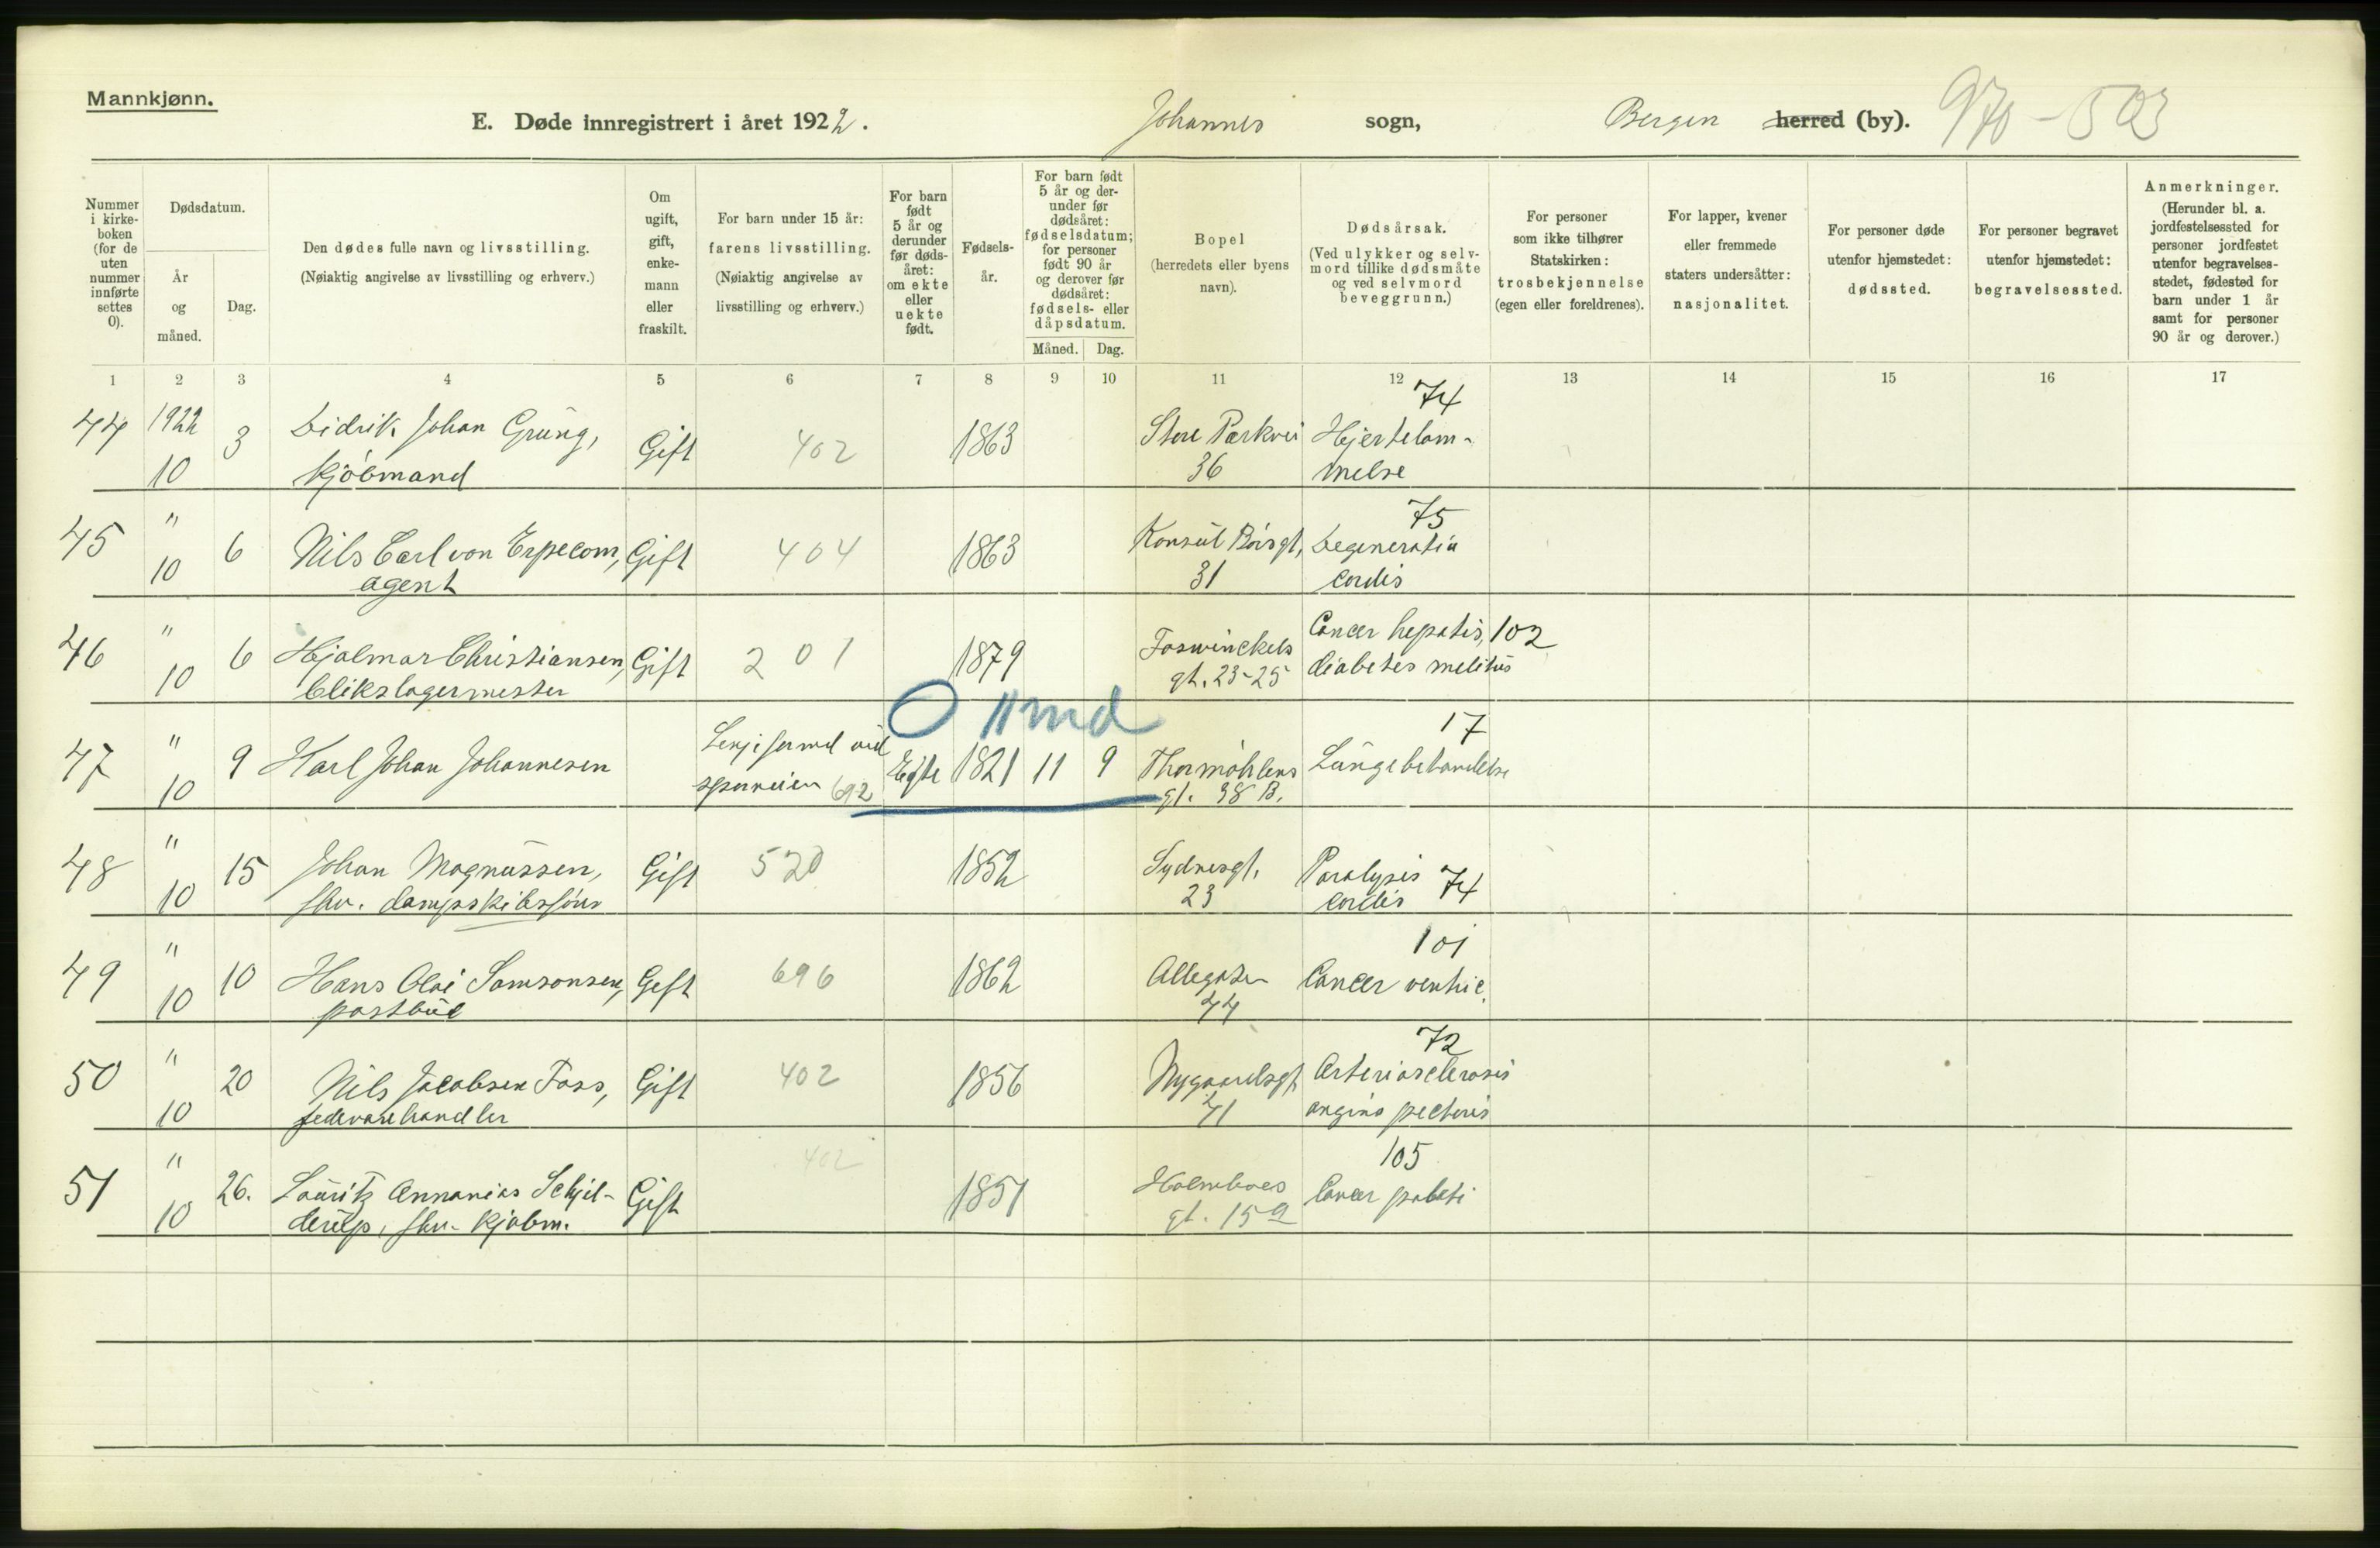 Mannkjønn.
E. Døde innregistrert i året 1922. Johannes sogn, Bergen herred (by). 970-503
Nummer i kirke-boken (for de uten nummer innførte settes 0).
Dødsdatum.
År og måned.
Dag.
Den dødes fulle navn og livsstilling.
(Nøiaktig angivelse av livsstilling og erhverv.)
Om ugift, gift, enke-mann eller fraskilt.
For barn under 15 år: farens livsstilling.
(Nøiaktig angivelse av livsstilling og erhverv.)
For barn født 5 år og derunder før døds-året: om ekte eller uekte født.
Fødsels-år.
For barn født 5 år og der-under før dødsåret: fødselsdatum; for personer født 90 år og derover før dødsåret: fødsels- eller dåpsdatum.
Måned. Dag.
Bopel
(herredets eller byens navn).
Dødsårsak.
(Ved ulykker og selv-mord tillike dødsmåte og ved selvmord beveggrunn.)
For personer som ikke tilhører Statskirken: trosbekjennelse (egen eller foreldrenes).
For lapper, kvener eller fremmede staters undersåtter: nasjonalitet.
For personer døde utenfor hjemstedet: dødssted.
For personer begravet utenfor hjemstedet: begravelsessted.
Anmerkninger.
(Herunder bl. a. jordfestelsessted for personer jordfestet utenfor begravelses-stedet, fødested for barn under 1 år samt for personer 90 år og derover.)
1 2 3 4 5 6 7 8 9 10 11 12 13 14 15 16 17
74
44 1922 3 Didrik Johan Grüng, Gift 402 1863 Store Parkvei Hjertelam-
10 kjöbmand 36 melse
75
45 " 6 Nils Carl von Erpecom, Gift 404 1863 Konsul Börsgt, Degeneratio
10 agent 31 cordis
46 " 6 Hjalmar Christiansen, Gift 201 1879 Foswinckels Cancer hepatis, 102
10 blikslagermester gt. 23-25 diabetes melitus
0 11 md
17
47 " 9 Karl Johan Johannesen ved Egte 1821 11 9 Thormöhlens Lungebetændelse
10 sporveien 692 gt. 38 B.
48 " 15 Johan Magnussen, Gift 520 1852 Sydnesgt. Paralysis
10 fhv. 23 cordis 74
101
49 " 10 Hans Olai Samsonsen, Gift 696 1862 Allegaten Cancer ventric.
10 postbud 44
72
50 " 20 Nils Jacobsen Foss, Gift 402 1856 Nygaardsgt Arteriosclerosis
10 fedevarehandler 41 angina pectoris
402 105
51 " 26. Lauritz Annanias Schjel- Gift 1851 Holmboes Cancer
10 derup, fhv. kjøbm. gt. 15 a